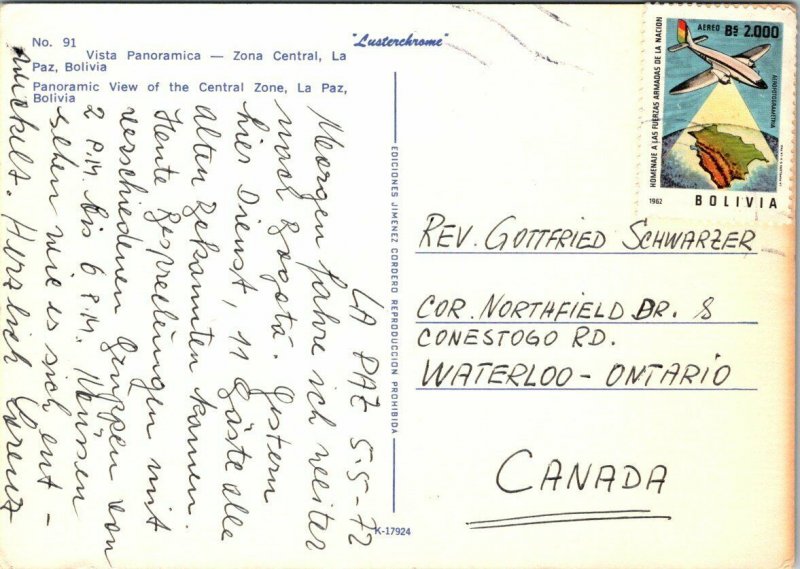 No. 91
Vista Panoramica — Zona Central, La
Paz, Bolivia
Panoramic View of the Central Zone, La Paz,
Bolivia
"Lusterchrome"
EDICIONES JIMENEZ CORDERO REPRODUCCION PROHIBIDA
K-17924
LA PAZ 5-5-72
Morgen fahre ich weiter
nach Bogotá. Gestern
hier Dienst, 11 Gäste alle
alten Bekannten kamen.
Heute Besprechungen mit
verschiedenen Gruppen von
2 P.M. bis 6 P.M. Müssen
sehen wie es sich ent-
wickelt. Herzlich Lorenz
AEREO Bs 2.000
HOMENAJE A LAS FUERZAS ARMADAS DE LA NACION
AEROFOTOGRAMETRIA
1962
BOLIVIA
REV. GOTTFRIED SCHWARZER
COR. NORTHFIELD DR. &
CONESTOGO RD.
WATERLOO - ONTARIO
CANADA